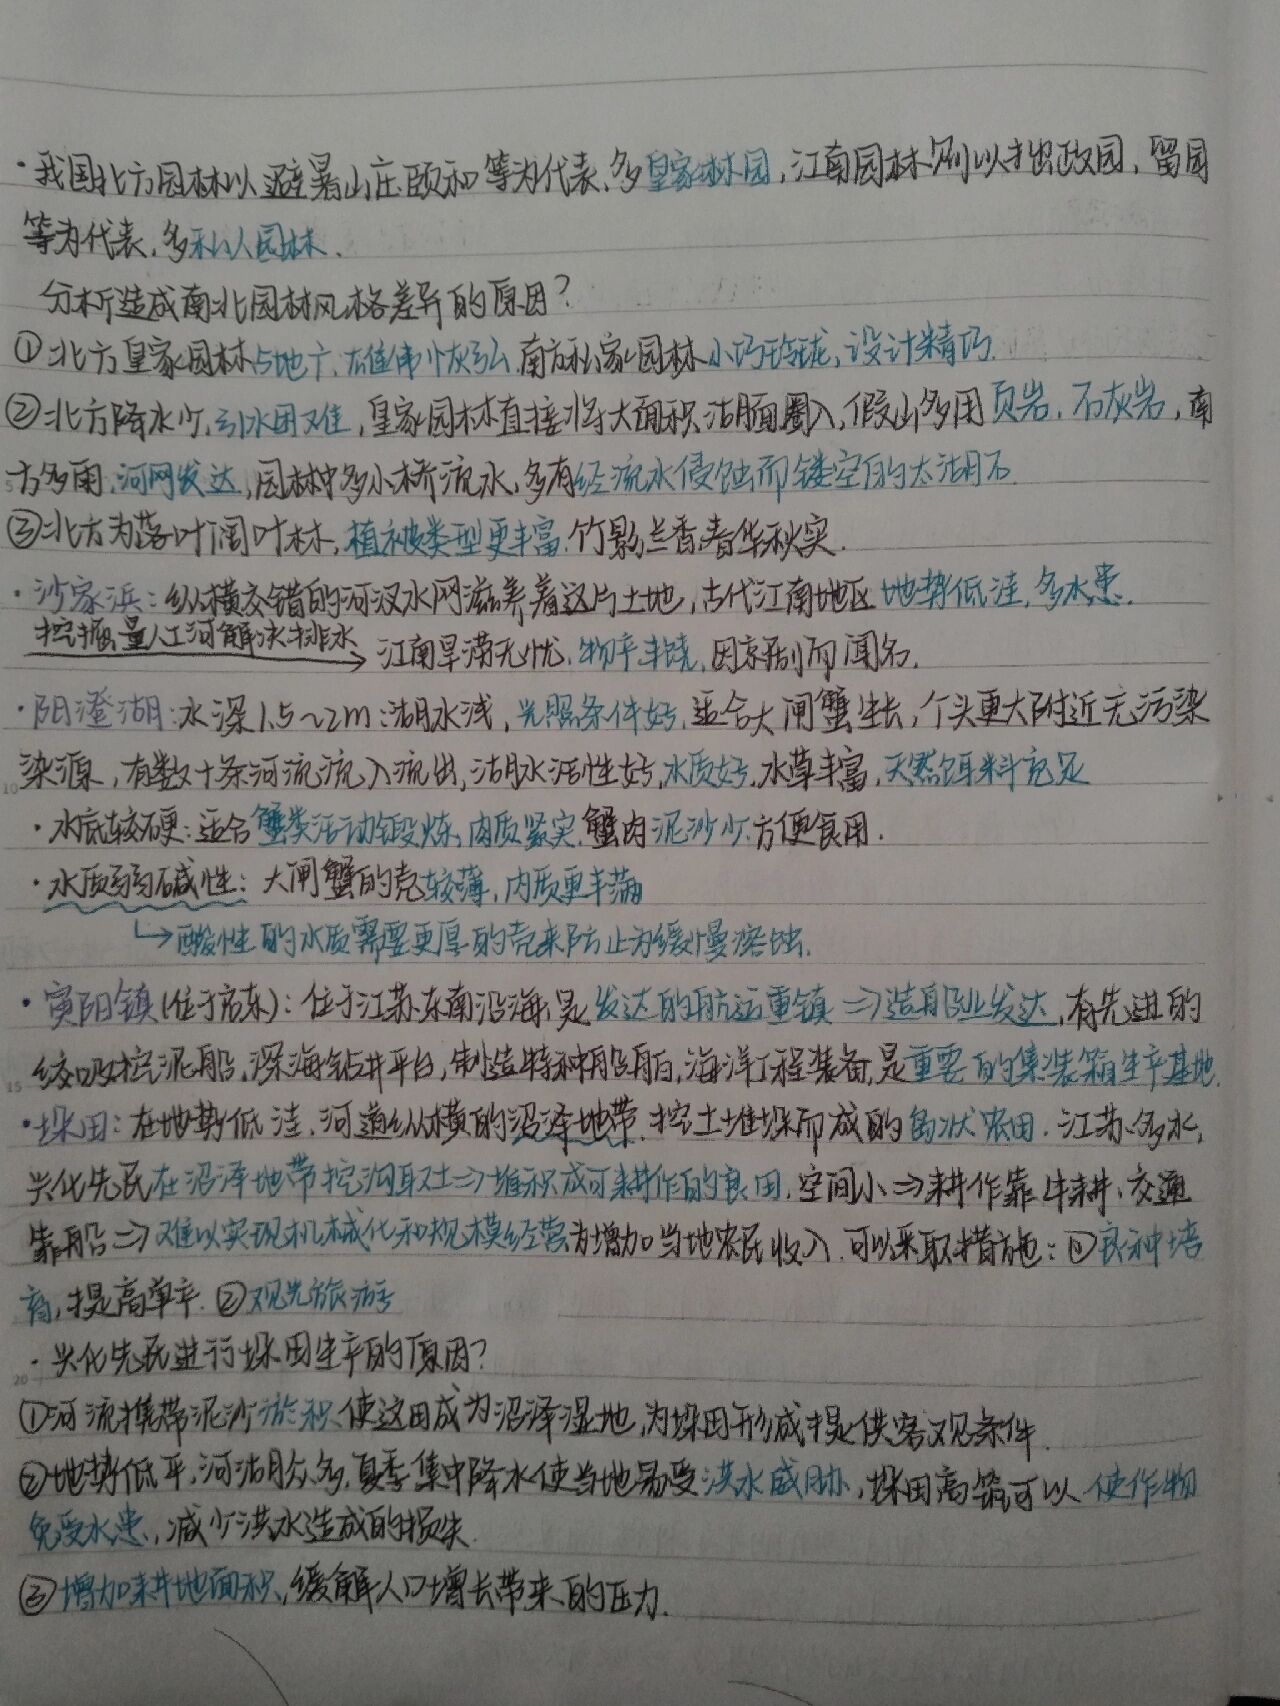 ·我国北方园林以避暑山庄、颐和等为代表,多皇家林园,江南园林则以拙政园,留园
等为代表,多私人园林、
分析造成南北园林风格差异的原因?
①北方皇家园林占地广,雄伟恢弘.南方私家园林小巧玲珑,设计精巧.
②北方降水少,引水困难,皇家园林直接将大面积湖面圈入,假山多用页岩,石灰岩,南
方多雨,河网发达,园林中多小桥流水,多有经流水侵蚀而镂空的太湖石
③北方为落叶阔叶林,植被类型更丰富.竹影兰香春华秋实.
·沙家浜:纵横交错的河汊水网滋养着这片土地,古代江南地区地势低洼,多水患.
挖掘量人工河解决排水→江南旱涝无忧,物产丰饶,因京剧而闻名.
·阳澄湖:水深1.5~2m:湖水浅,光照条件好,适合大闸蟹生长,个头更大附近无污染
染源,有数十条河流流入流出,湖水活性好,水质好,水草丰富,天然饵料充足
·水底较硬:适合蟹类活动锻炼,肉质紧实,蟹肉泥沙少.方便食用.
·水质弱碱性:大闸蟹的壳较薄,肉质更丰满
↳酸性的水质需要更厚的壳来防止为缓慢溶蚀.
·寅阳镇(位于启东):位于江苏东南沿海,是发达的航运重镇⇒造船业发达,有先进的
绞吸挖泥船,深海钻井平台,制造特种船舶,海洋工程装备,是重要的集装箱生产基地.
·垛田:在地势低洼,河道纵横的沼泽地带,挖土堆垛而成的岛状农田.江苏多水,
兴化先民在沼泽地带挖沟取土⇒堆积成可耕作的良田,空间小⇒耕作靠牛耕,交通
靠船⇒难以实现机械化和规模经营为增加当地农民收入.可以采取措施:①良种培
育,提高单产.②观光旅游
·兴化先民进行垛田生产的原因?
①河流携带泥沙淤积使这田成为沼泽湿地,为垛田形成提供客观条件.
②地势低平,河湖众多,夏季集中降水使当地易受洪水威胁,垛田高筑可以使作物
免受水患,减少洪水造成的损失.
③增加耕地面积,缓解人口增长带来的压力.